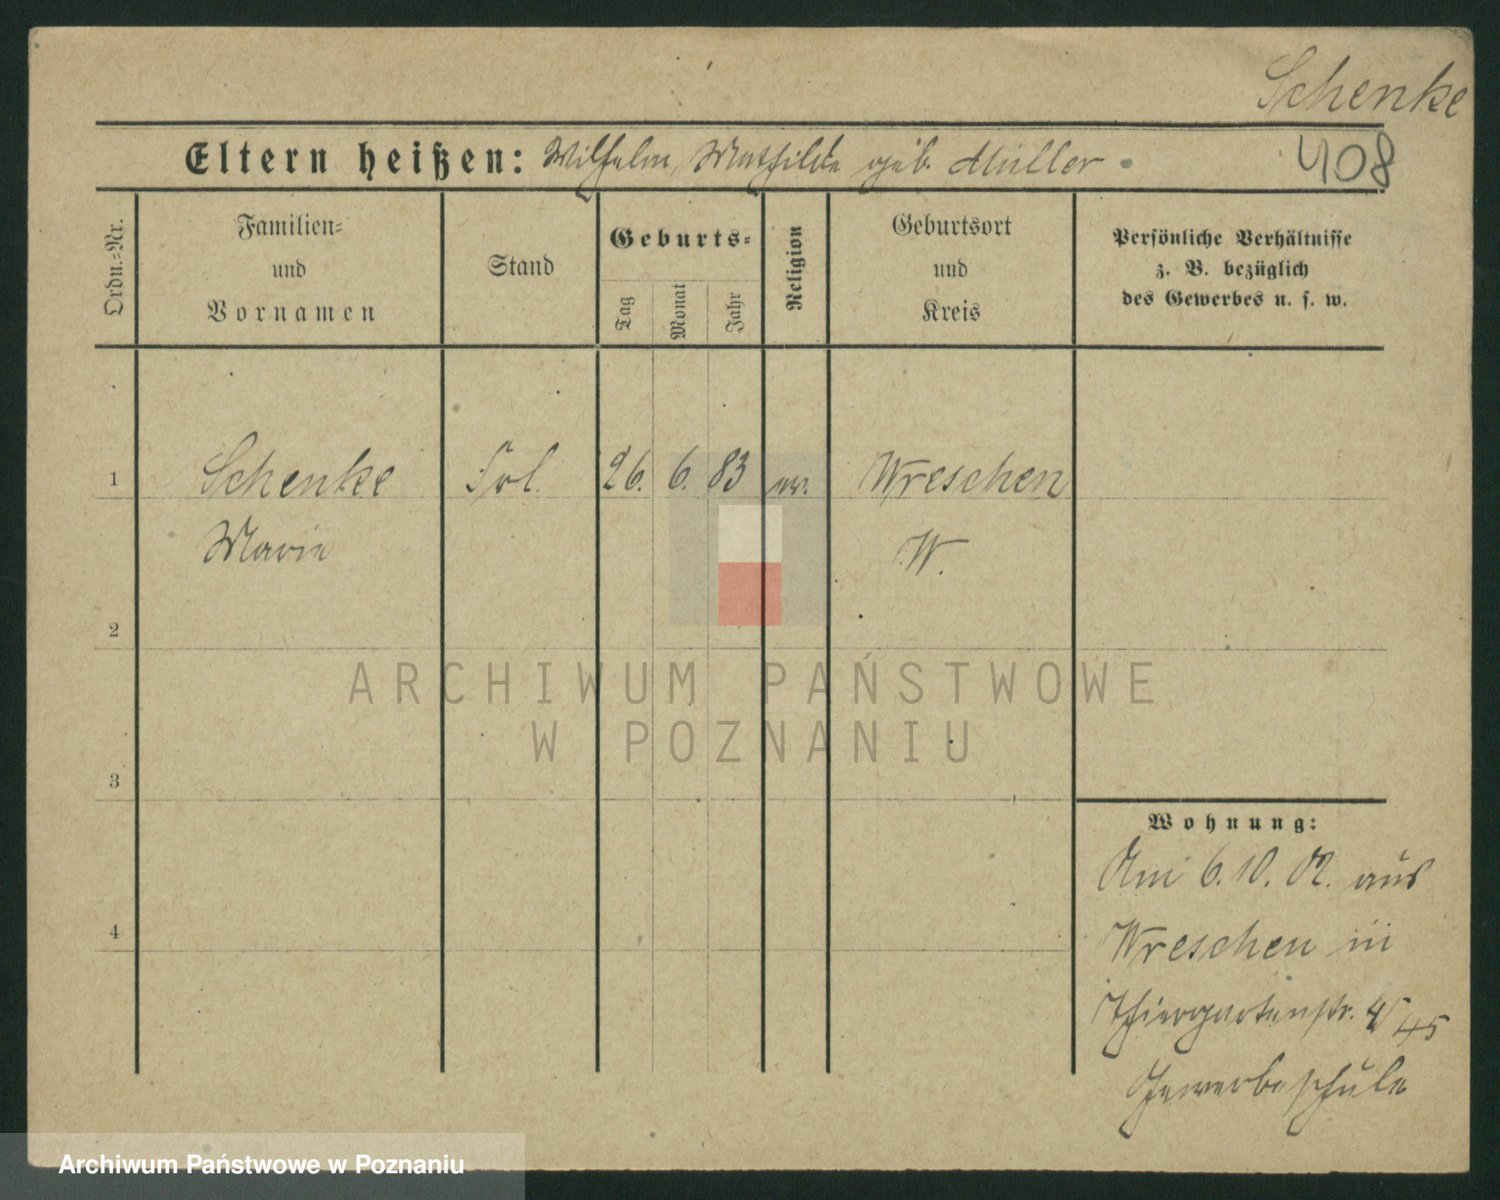 Schenke
Eltern heißen: Wilhelm, Mathilde geb. Müller.
408
Ordn.=Nr.
Familien=
und
Vornamen
Stand
Geburts=
Tag
Monat
Jahr
Religion
Geburtsort
und
Kreis
Persönliche Verhältnisse
z. B. bezüglich
des Gewerbes u. s. w.
1 Schenke Frl. 26. 6. 83 ev. Wreschen
Marie W.
2
3
4
Wohnung:
Am 6.10.02. aus
Wreschen in
Thiergartenstr. 4/45
Gewerbeschule
ARCHIWUM PAŃSTWOWE
W POZNANIU
Archiwum Państwowe w Poznaniu